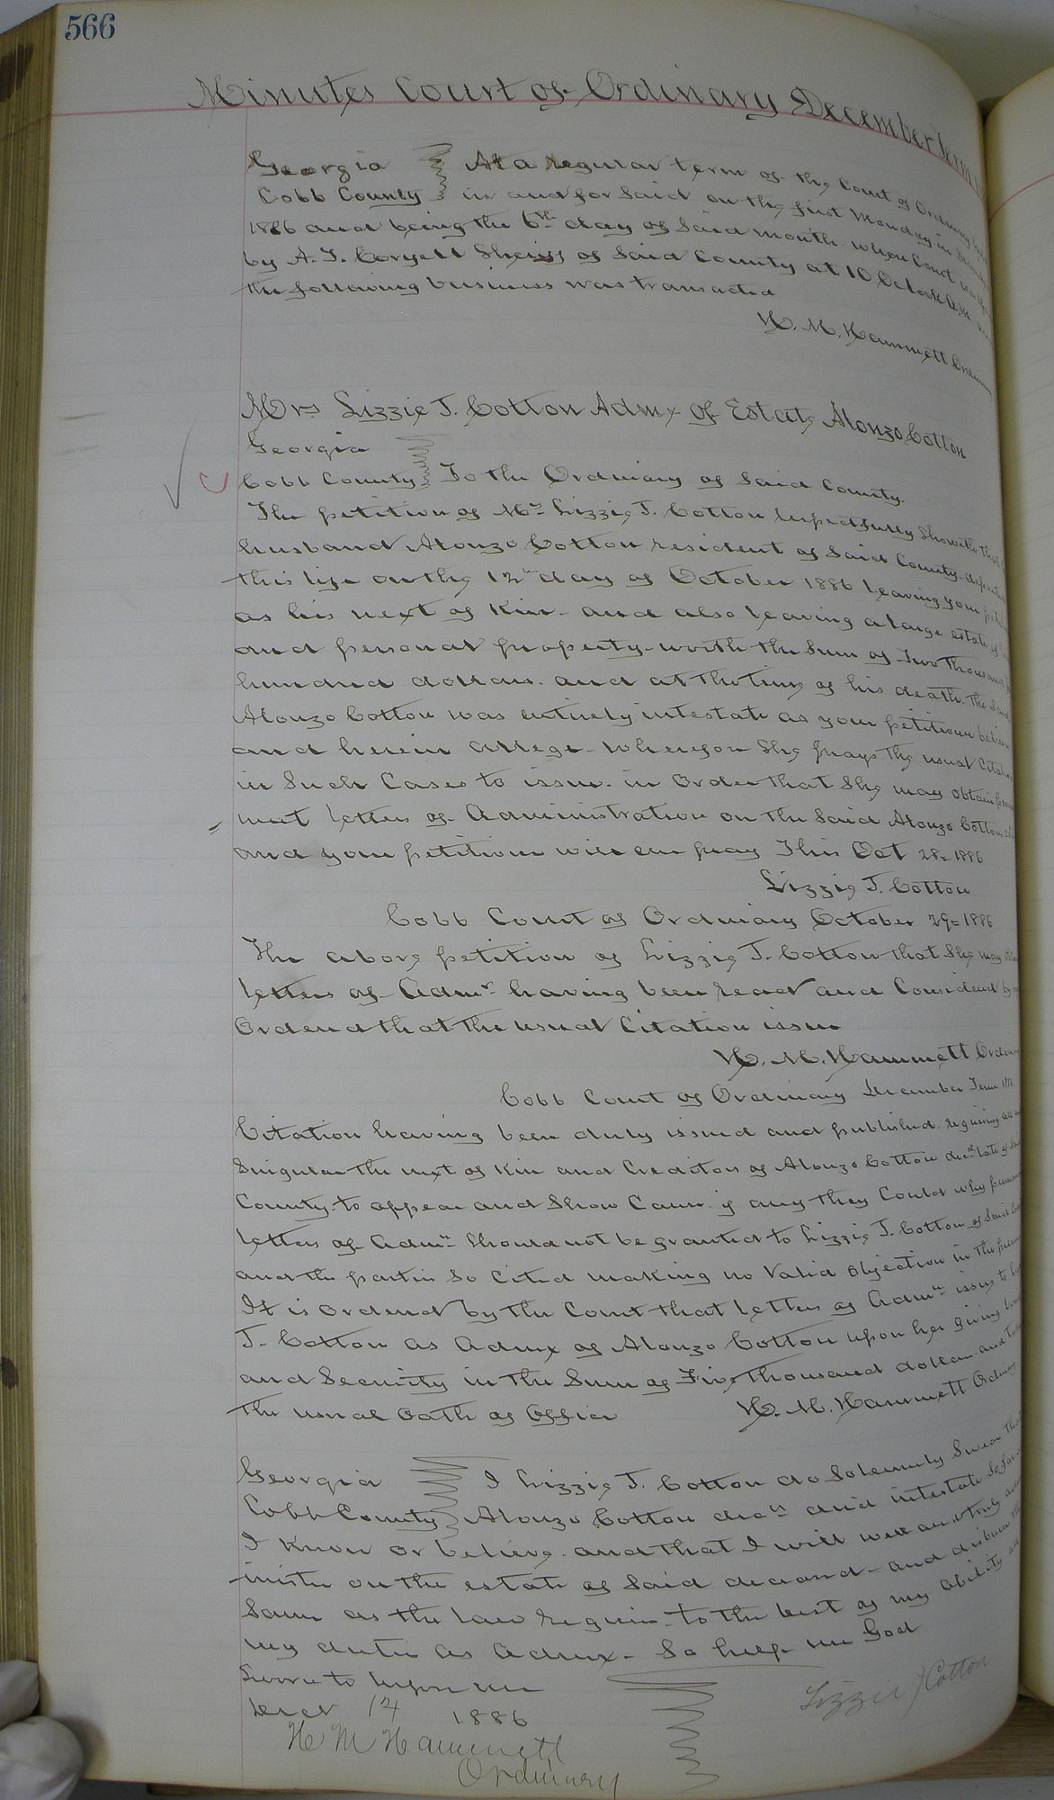 566
Minutes Court of Ordinary December Term
Georgia At a regular term of the Court of Ordinary
Cobb County in and for Said on the first Monday in
1886 and being the 6th day of Said month when Court was
by A. J. Coryell Sheriff of Said County at 10 Oclock A.M.
the following business was transacted
H. M. Hammett Ordinary
Mrs Lizzie J. Cotton Admx of Estate Alonzo Cotton
Georgia
Cobb County To the Ordinary of Said County.
The petition of Mrs Lizzie J. Cotton respectfully Showeth that
husband Alonzo Cotton resident of Said County departed
this life on the 12th day of October 1886 leaving your
as his next of Kin and also leaving a large estate of
and personal property worth the Sum of Two Thousand
hundred dollars. and at the time of his death. The Said
Alonzo Cotton was entirely intestate as your petitioner
and herein allege. Wherefore She prays the usual Citation
in Such Cases to issue. in Order that She may obtain perma
nent letters of Administration on the Said Alonzo Cotton
and your petitioner will ever pray This Oct 28. 1886
Lizzie J. Cotton
Cobb Court of Ordinary October 29. 1886
The above petition of Lizzie J. Cotton that She may
letters of Admn having been read and Considered
Ordered that the usual Citation issue
H. M. Hammett Ordinary
Cobb Court of Ordinary December Term
Citation having been duly issued and published. requiring all
Singular the next of Kin and Creditors of Alonzo Cotton decd late of
County. to appear and Show Cause if any they Could why permanent
letters of Admn Should not be granted to Lizzie J. Cotton of Said
and the parties So Cited making no Valid objection in the
It is ordered by the Court that letters of Admn issue to
J. Cotton as Admx of Alonzo Cotton upon her giving bond
and Security in the Sum of Five thousand dollars and
the usual oath of Office
H. M. Hammett Ordinary
Georgia I Lizzie J. Cotton do Solemnly Swear that
Cobb County Alonzo Cotton decd died intestate So far
I know or believe. and that I will well and truly admin
inister on the estate of Said deceased and disburse the
Same as the law requires to the best of my ability
my duties as Admx. So help me God
Sworn to before me
Decr 14 1886
Lizzie J Cotton
H M Hammett
Ordinary